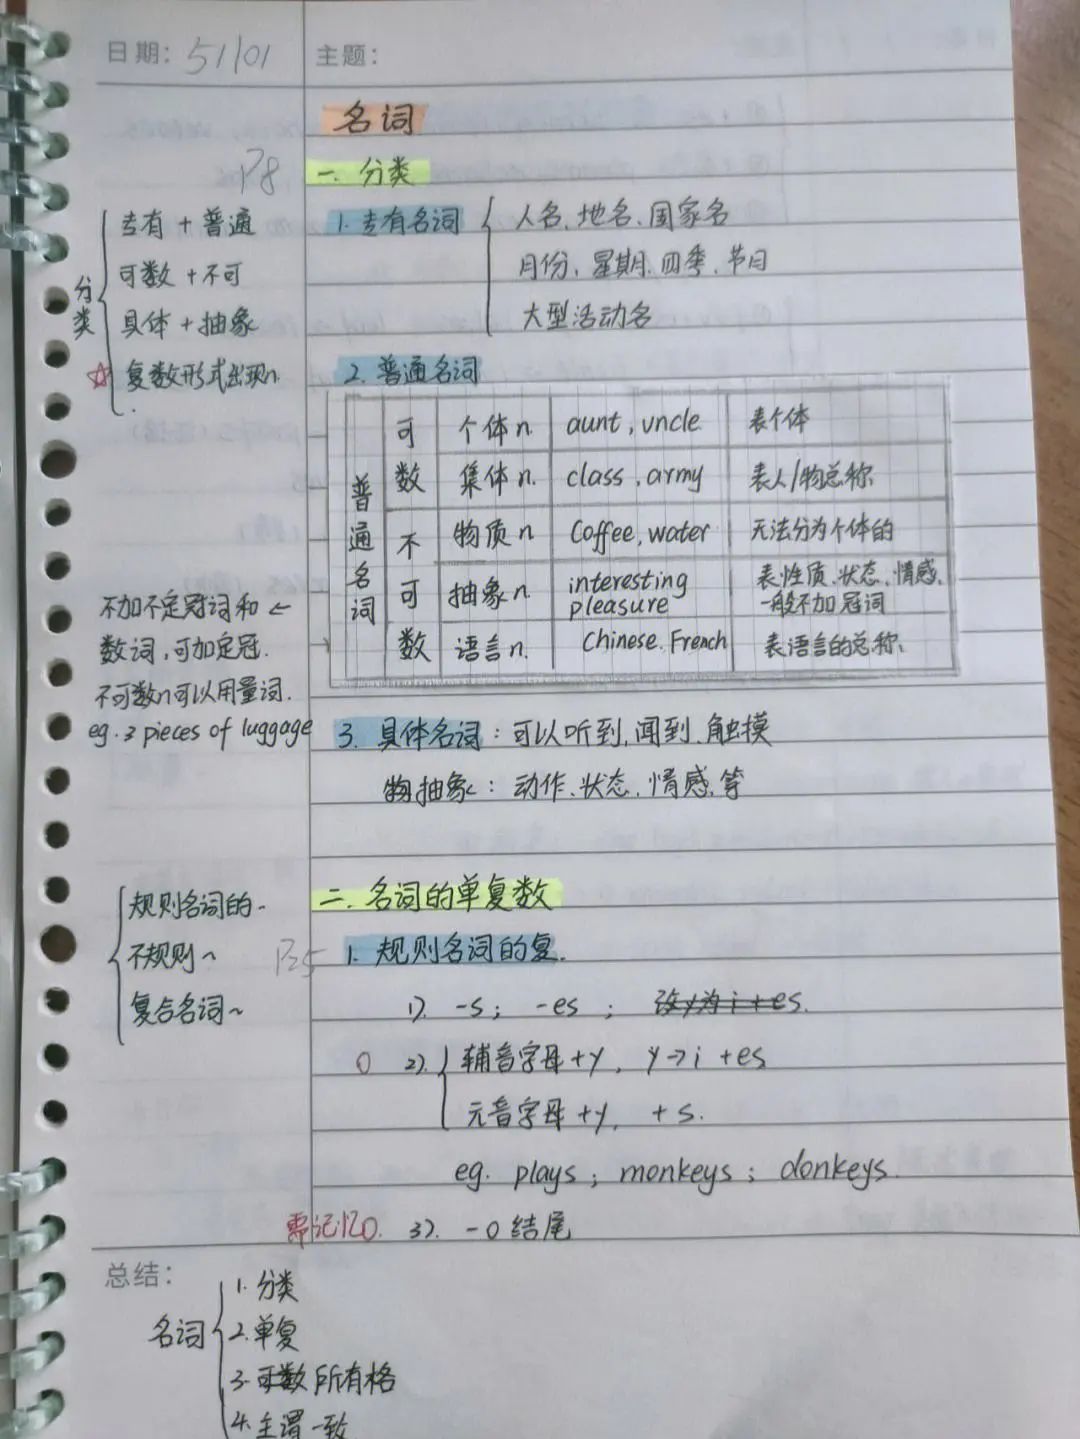 日期: 51101
主题:
名词
P8
一. 分类
专有 + 普通
可数 + 不可
具体 + 抽象
复数形式出现n.
分类
1. 专有名词
人名、地名、国家名
月份、星期、四季、节日
大型活动名
2. 普通名词
普通名词
可数
个体n. aunt, uncle 表个体
集体n. class, army 表人/物总称
不可数
物质n. Coffee, water 无法分为个体的
抽象n. interesting pleasure 表性质、状态、情感、一般不加冠词
语言n. Chinese. French 表语言的总称
不加不定冠词和 ←
数词,可加定冠.
不可数n可以用量词.
eg. 3 pieces of luggage
3. 具体名词: 可以听到, 闻到、触摸
抽象: 动作、状态、情感、等
二. 名词的单复数
规则名词的~
不规则~
复合名词~
1. 规则名词的复.
1). -s; -es; 改y为i+es.
2). 辅音字母+y, y→i+es
元音字母+y, +s.
eg. plays; monkeys; donkeys.
需记忆
3). -o结尾
总结:
名词
1. 分类
2. 单复
3. 可数 所有格
4. 主谓一致